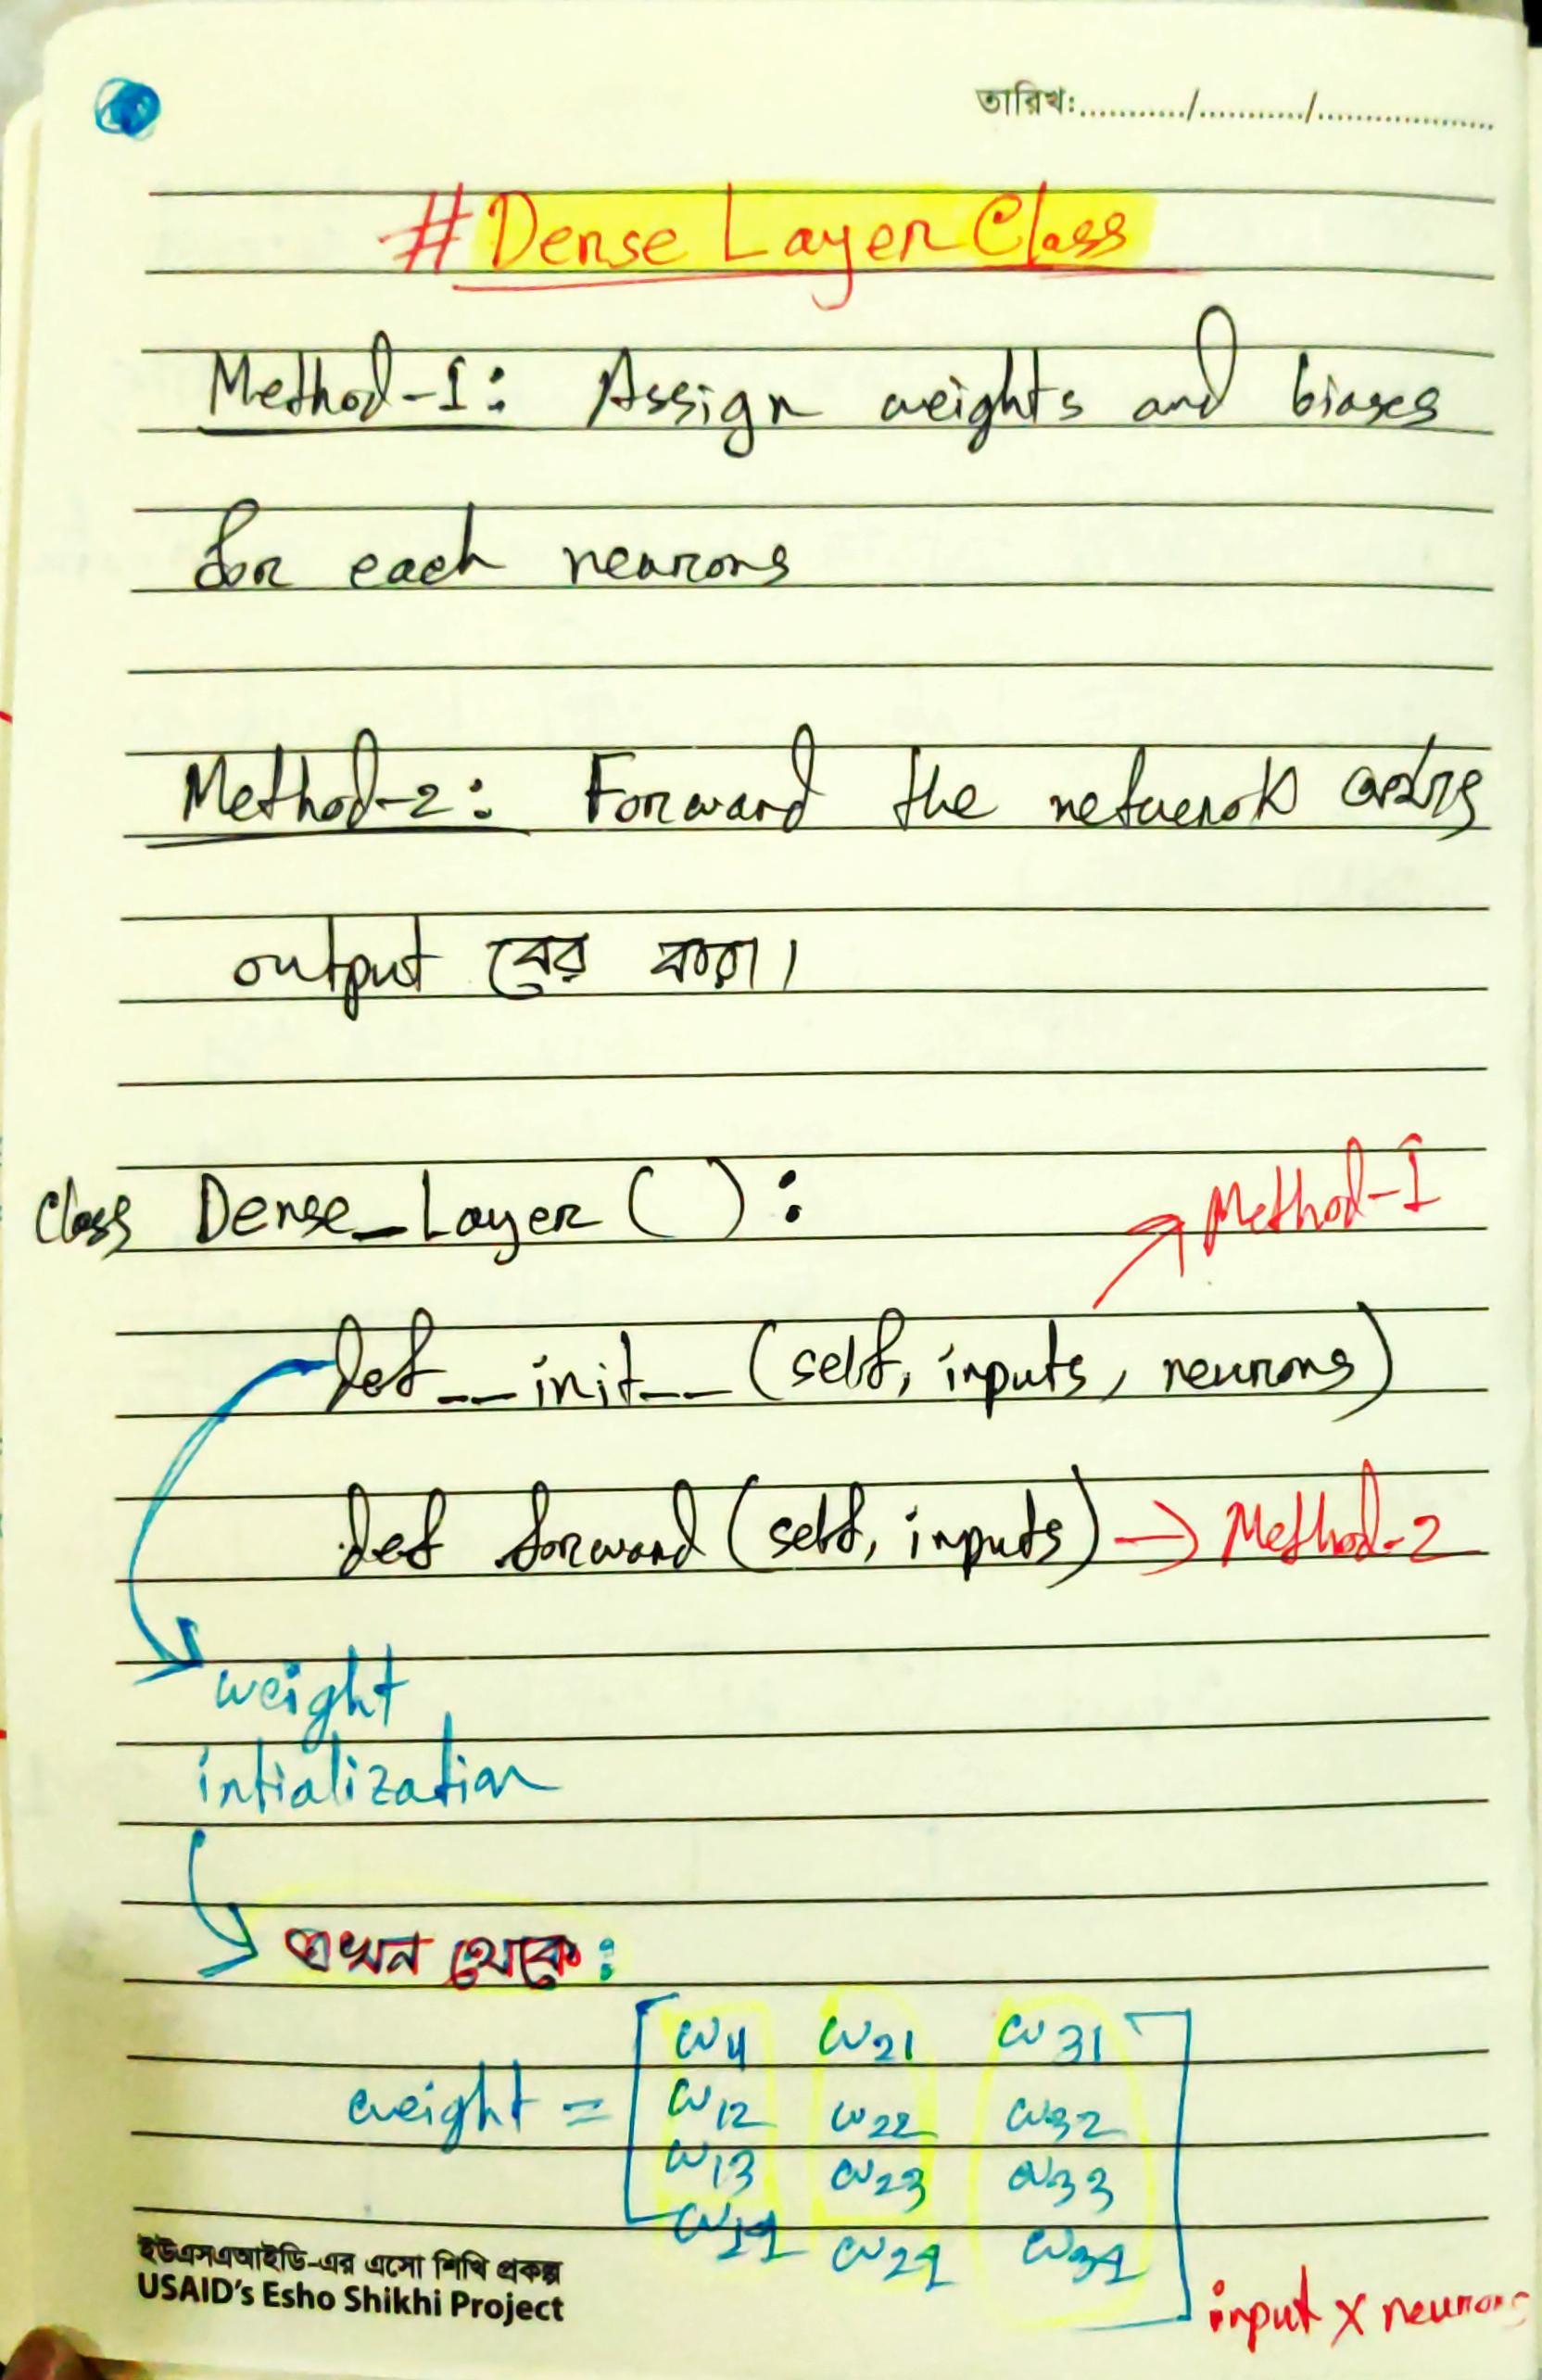 তারিখ:........../........../..................
# Dense Layer Class
Method-1: Assign weights and biases
for each neurons
Method-2: Forward the network
output বের করা।
class Dense_Layer ( ) :
Method-1
def __init__ (self, inputs, neurons)
def forward (self, inputs) → Method-2
weight
intialization
এখন থেকে:
w11 w21 w31
weight = w12 w22 w32
w13 w23 w33
w14 w24 w34
input x neurons
ইউএসএআইডি-এর এসো শিখি প্রকল্প
USAID's Esho Shikhi Project